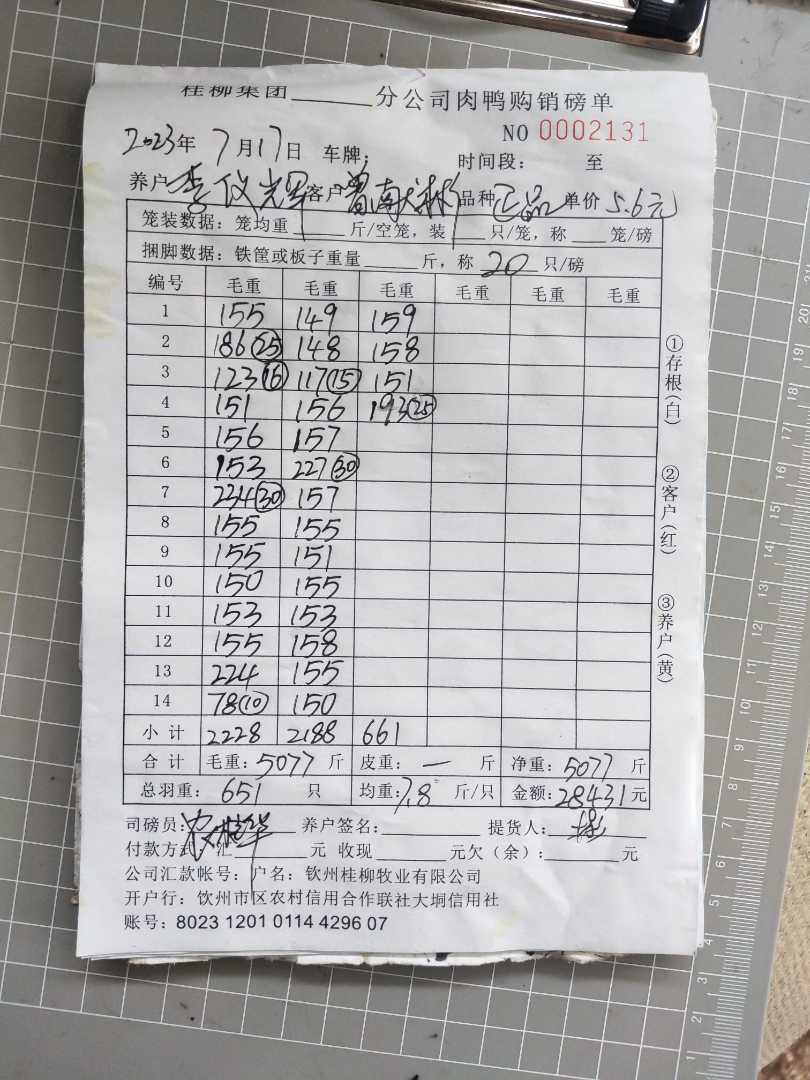 桂柳集团______分公司肉鸭购销磅单
NO 0002131
2023年7月17日 车牌： 时间段： 至
养户李仪光军客户曾南 品种正品单价5.6元
笼装数据：笼均重____斤/空笼，装____只/笼，称____笼/磅
捆脚数据：铁筐或板子重量____斤，称20只/磅
编号 毛重 毛重 毛重 毛重 毛重 毛重
1 155 149 159
2 186(25) 148 158
3 123(16) 117(15) 151
4 151 156 193(25)
5 156 157
6 153 227(30)
7 234(30) 157
8 155 155
9 155 151
10 150 155
11 153 153
12 155 158
13 224 155
14 78(10) 150
小计 2228 2188 661
合计 毛重：5077斤 皮重：一 斤 净重：5077斤
总羽重：651只 均重：7.8斤/只 金额：28431元
司磅员：农桂华 养户签名：______ 提货人：彬
付款方式：汇______元 收现______元欠（余）：______元
公司汇款帐号：户名：钦州桂柳牧业有限公司
开户行：钦州市区农村信用合作联社大垌信用社
账号：8023 1201 0114 4296 07
①存根（白）
②客户（红）
③养户（黄）